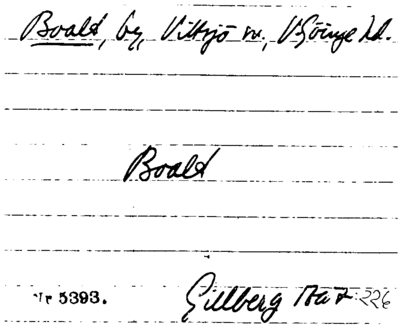 Boalt, by, Vittsjö sn., V Göinge hd.
Boalt
Nr 5393.
Gillberg 226